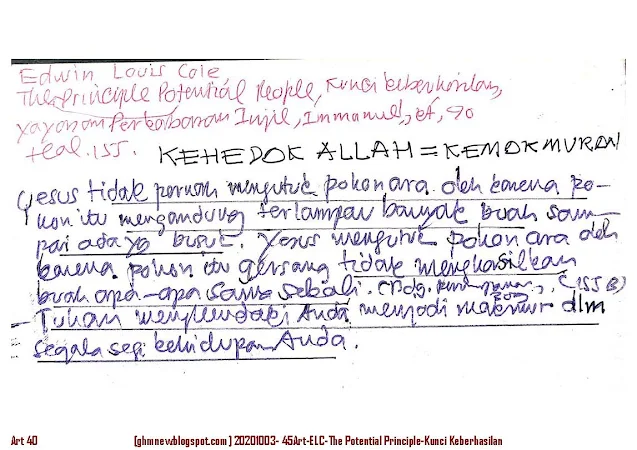 Edwin Louis Cole
The Principle Potential People, Kunci keberhasilan,
Yayasan Perkabaran Injil, Immanuel, cet, 90
hal. 155. KEHEDOK ALLAH = KEMOKMURAN
Yesus tidak pernah mengutuk pohon ara oleh karena po-
hon itu mengandung terlampau banyak buah sam-
pai ada yg busuk. Yesus mengutuk pohon ara oleh
karena pohon itu gersang tidak menghasilkan
buah apa-apa sama sekali. (155 B)
- Tuhan menghendaki Anda menjadi makmur dlm
segala segi kehidupan Anda.
Art 40 [ghmnew.blogspot.com] 20201003- 45Art-ELC-The Potential Principle-Kunci Keberhasilan